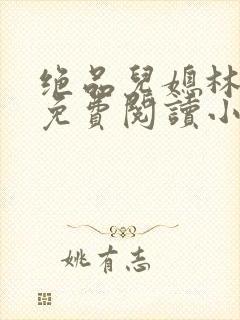 绝品兒媳林
免費閱讀小
姚有志